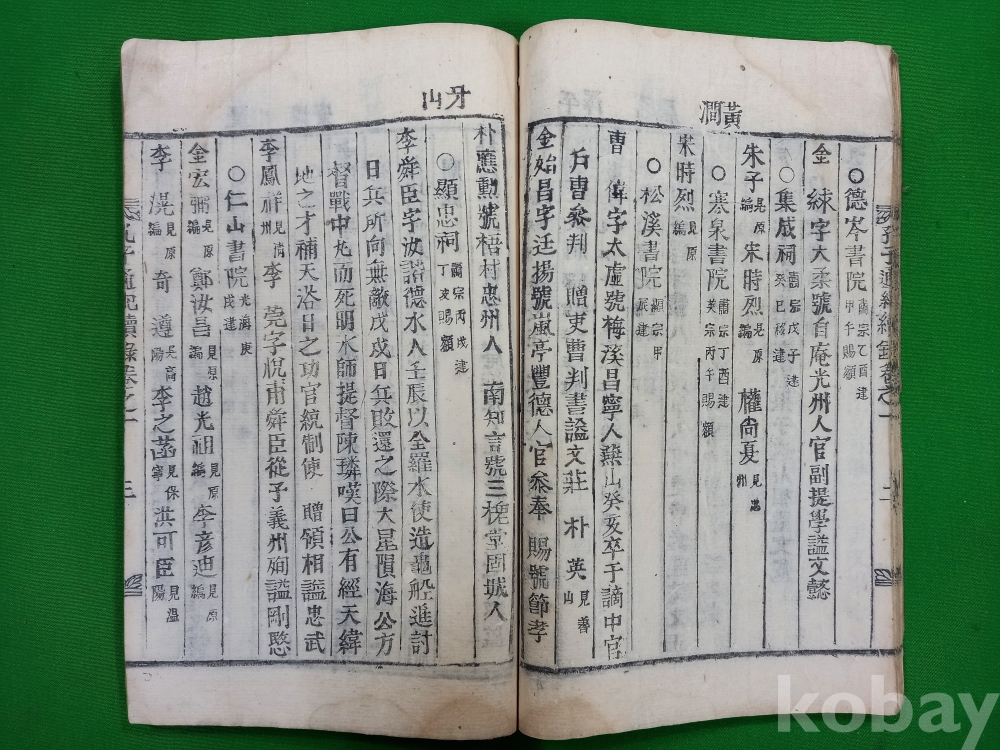 黃澗
○德岑書院 肅宗乙酉建 甲午賜額
金 練字大柔號自庵光州人官副提學謚文懿
○集成祠 肅宗戊子建 癸巳移建
朱子 見原編 宋時烈 見原編 權尙夏 見忠州
○寒泉書院 肅宗丁酉建 英宗丙午賜額
宋時烈 見原編
○松溪書院 顯宗甲辰建
曹 偉字太虛號梅溪昌寧人燕山癸亥卒于謫中官
戶曹叅判 贈吏曹判書謚文莊 朴英 見善山
金始昌字廷揚號嵐亭豐德人官叅奉 賜號節孝
朴應勳號梧村忠州人 南知言號三槐堂固城人
牙山
○顯忠祠 肅宗丙戌建 丁亥賜額
李舜臣字汝諧德水人壬辰以全羅水使造龜船進討
日兵所向無敵戊戌日兵敗還之際大星隕海公方
督戰中丸而死明水師提督陳璘嘆曰公有經天緯
地之才補天浴日之功官統制使 贈領相謚忠武
李鳳祥 見淸州 李 莞字悅甫舜臣從子義州殉謚剛愍
○仁山書院 光海庚戌建
金宏弼 見原編 鄭汝昌 見原編 趙光祖 見原編 李彦迪 見原編
李 滉 見原編 奇 遵 見高陽 李之菡 見保寧 洪可臣 見溫陽